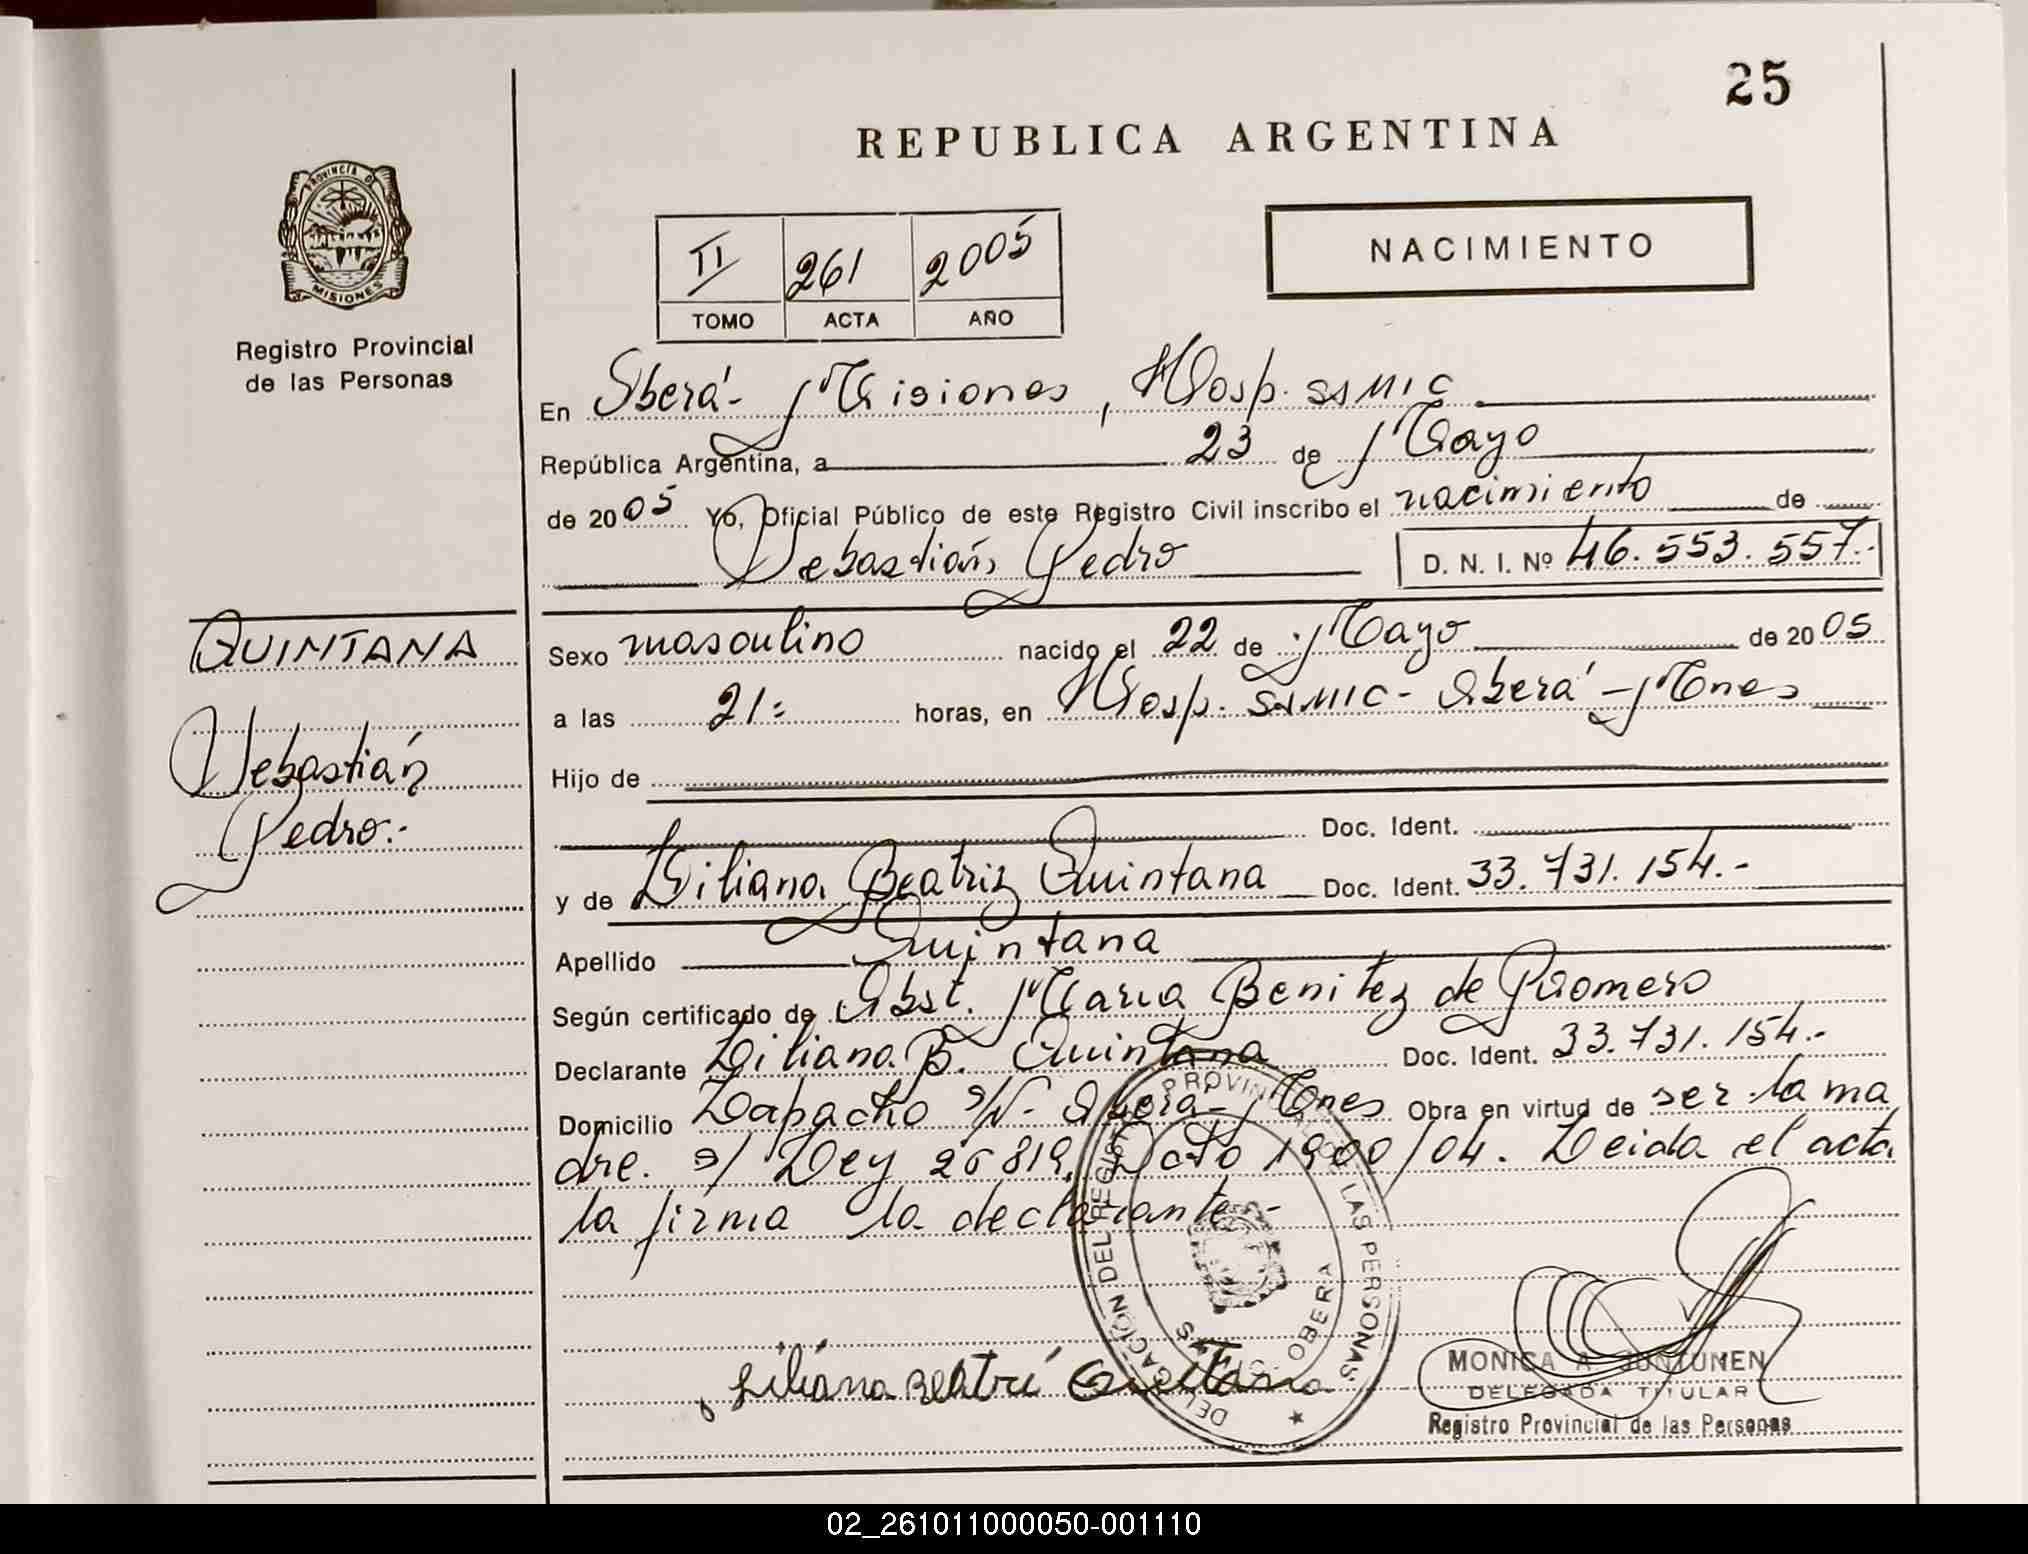 25
REPUBLICA ARGENTINA
PROVINCIA DE
MISIONES
Registro Provincial
de las Personas
II 261 2005
TOMO ACTA AÑO
NACIMIENTO
En Oberá - Misiones, Hosp. SAMIC
República Argentina, a 23 de Mayo
de 2005 Yo, Oficial Público de este Registro Civil inscribo el nacimiento de
Sebastián Pedro D. N. I. Nº 46.553.557.-
QUINTANA
Sebastián
Pedro.-
Sexo masculino nacido el 22 de Mayo de 2005
a las 21: horas, en Hosp. SAMIC - Oberá - Mnes
Hijo de
Doc. Ident.
y de Liliana Beatriz Quintana Doc. Ident. 33.731.154.-
Apellido Quintana
Según certificado de Obst. Maria Benitez de Romero
Declarante Liliana B. Quintana Doc. Ident. 33.731.154.-
Domicilio Lapacho s/Nº - Oberá - Mnes Obra en virtud de ser la ma
dre. s/ Ley 26819, Dcto 1900/04. Leida el acta
la firma la declarante.-
DELEGACIÓN DEL REGISTRO PROVINCIAL DE LAS PERSONAS
OBERA
Liliana Beatri Quintana
MONICA A. JUNTUNEN
DELEGADA TITULAR
Registro Provincial de las Personas
02_261011000050-001110